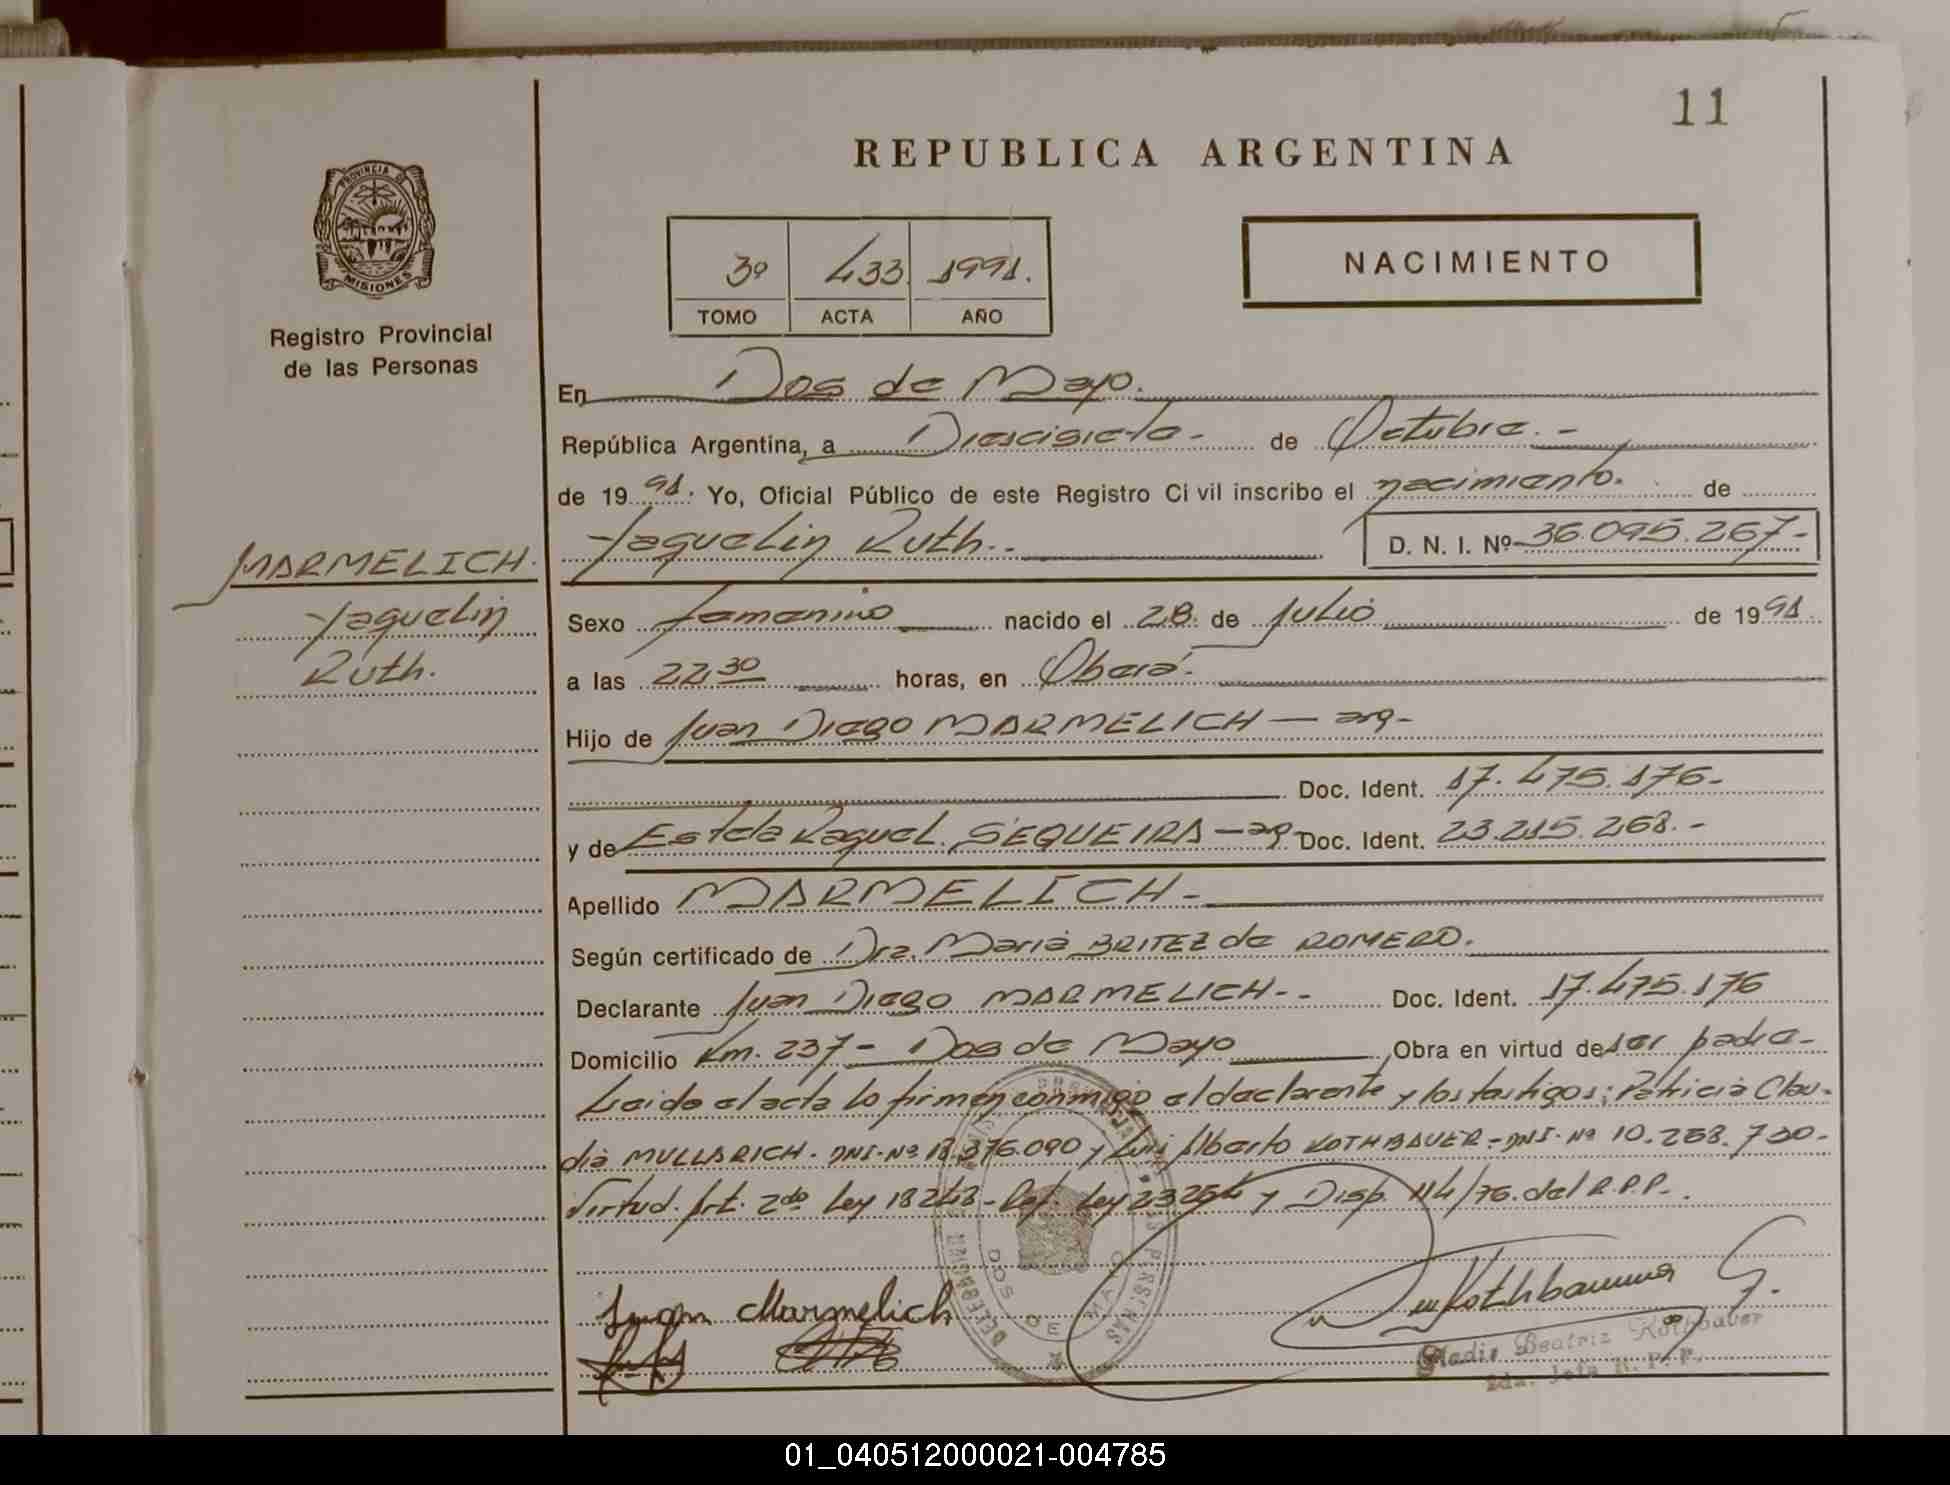 11
REPUBLICA ARGENTINA
PROVINCIA DE
MISIONES
Registro Provincial
de las Personas
NACIMIENTO
3º 433 1991.
TOMO ACTA AÑO
En Dos de Mayo.
República Argentina, a Diescisiete - de Octubre. -
de 19 91. Yo, Oficial Público de este Registro Civil inscribo el nacimiento. de
Yaquelin Ruth. - D. N. I. Nº 36.095.267-
MARMELICH.
Yaquelin
Ruth.
Sexo femenino nacido el 28. de julio de 1991
a las 22,30 horas, en Oberá.
Hijo de Juan Diego MARMELICH - arg-
Doc. Ident. 17.475.176-
y de Estela Raquel SEQUEIRA - ag- Doc. Ident. 23.215.268.-
Apellido MARMELICH -
Según certificado de Dra. Maria BRITEZ de ROMERO.
Declarante Juan Diego MARMELICH - - Doc. Ident. 17.475.176
Domicilio Km. 237 - Dos de Mayo Obra en virtud de ser padre-
Leida el acta lo firmen conmigo el declarante y los testigos; Patricia Clau-
dia MULLARICH. DNI. Nº 18.376.090 y Luis Alberto KOTHBAUER - DNI. Nº 10.268.730-
Virtud. Art. 2do Ley 18248 - Ley 23264 y Disp. 114/76. del R.P.P.-.
DOS DE MAYO
Juan Marmelich
Gladis Beatriz Kothbauer
R. P. P.
01_040512000021-004785